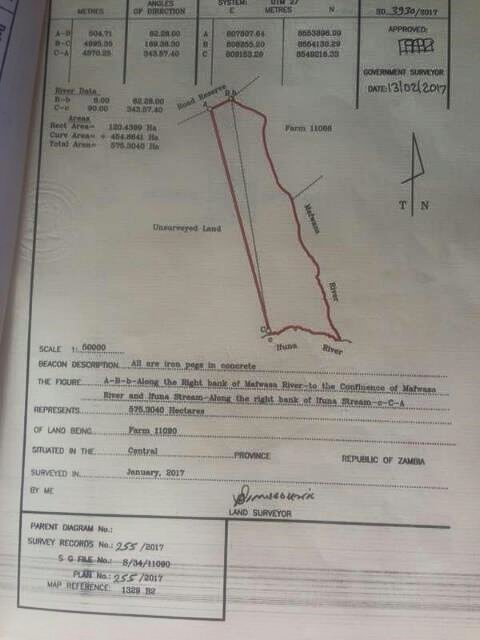 METRES ANGLES OF DIRECTION SYSTEM: UTM 27
E METRES N
SD 3930/2017
A-B 504.71 62.28.00 A 807807.64 8553896.99
B-C 4995.35 169.38.30 B 808255.20 8554130.29
C-A 4970.25 343.57.40 C 809153.29 8549216.33
APPROVED:
GOVERNMENT SURVEYOR
DATE: 13/02/2017
River Data
B-b 6.00 62.28.00
C-c 90.00 343.57.40
Areas
Rect Area= 120.4399 Ha
Curv Area= + 454.8641 Ha
Total Area= 575.3040 Ha
Road Reserve
A
B b
Farm 11066
Mafwasa
River
Unsurveyed Land
T N
C
c
Ifuna River
SCALE 1: 50000
BEACON DESCRIPTION All are iron pegs in concrete
THE FIGURE A-B-b-Along the Right bank of Mafwasa River-to the Confluence of Mafwasa
River and Ifuna Stream-Along the right bank of Ifuna Stream-c-C-A
REPRESENTS 575.3040 Hectares
OF LAND BEING Farm 11090
SITUATED IN THE Central PROVINCE REPUBLIC OF ZAMBIA
SURVEYED IN January, 2017
BY ME
LAND SURVEYOR
PARENT DIAGRAM No.:
SURVEY RECORDS No.: 255/2017
S G FILE No.: S/34/11090
PLAN No.: 255/2017
MAP REFERENCE: 1329 B2